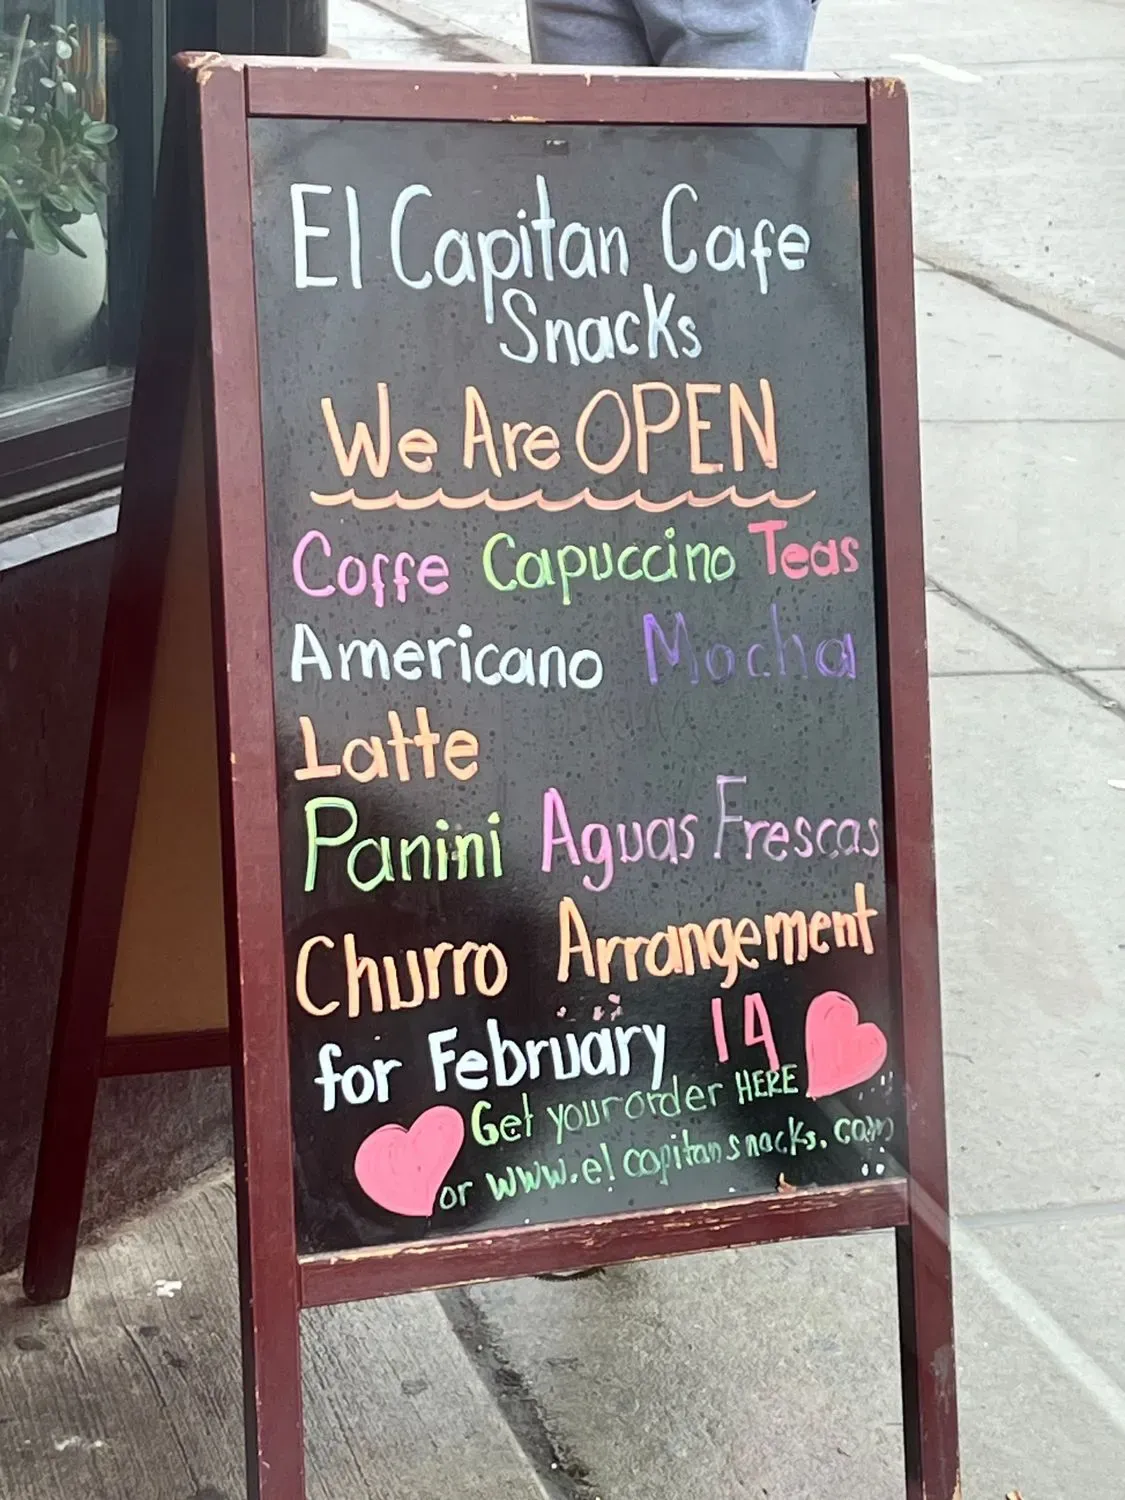 El Capitan Cafe
Snacks
We Are OPEN
Coffe Capuccino Teas
Americano Mocha
Latte
Panini Aguas Frescas
Churro Arrangement
for February 14
Get your order HERE
or www.elcapitansnacks.com